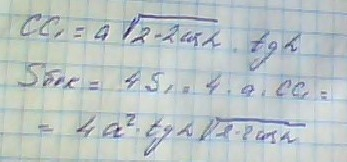 CC₁ = a √(2-2cosα) · tgα
Sбок = 4S₁ = 4·a·CC₁ =
= 4a²·tgα √(2-2cosα)